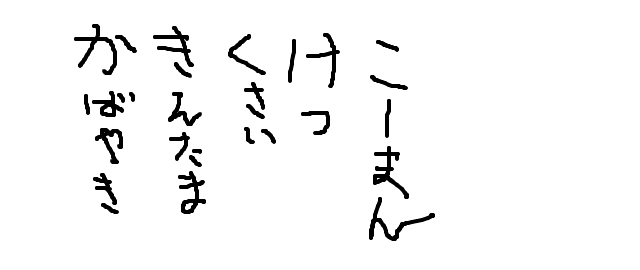 こーまん
けつ
くさい
きんたま
かばやき